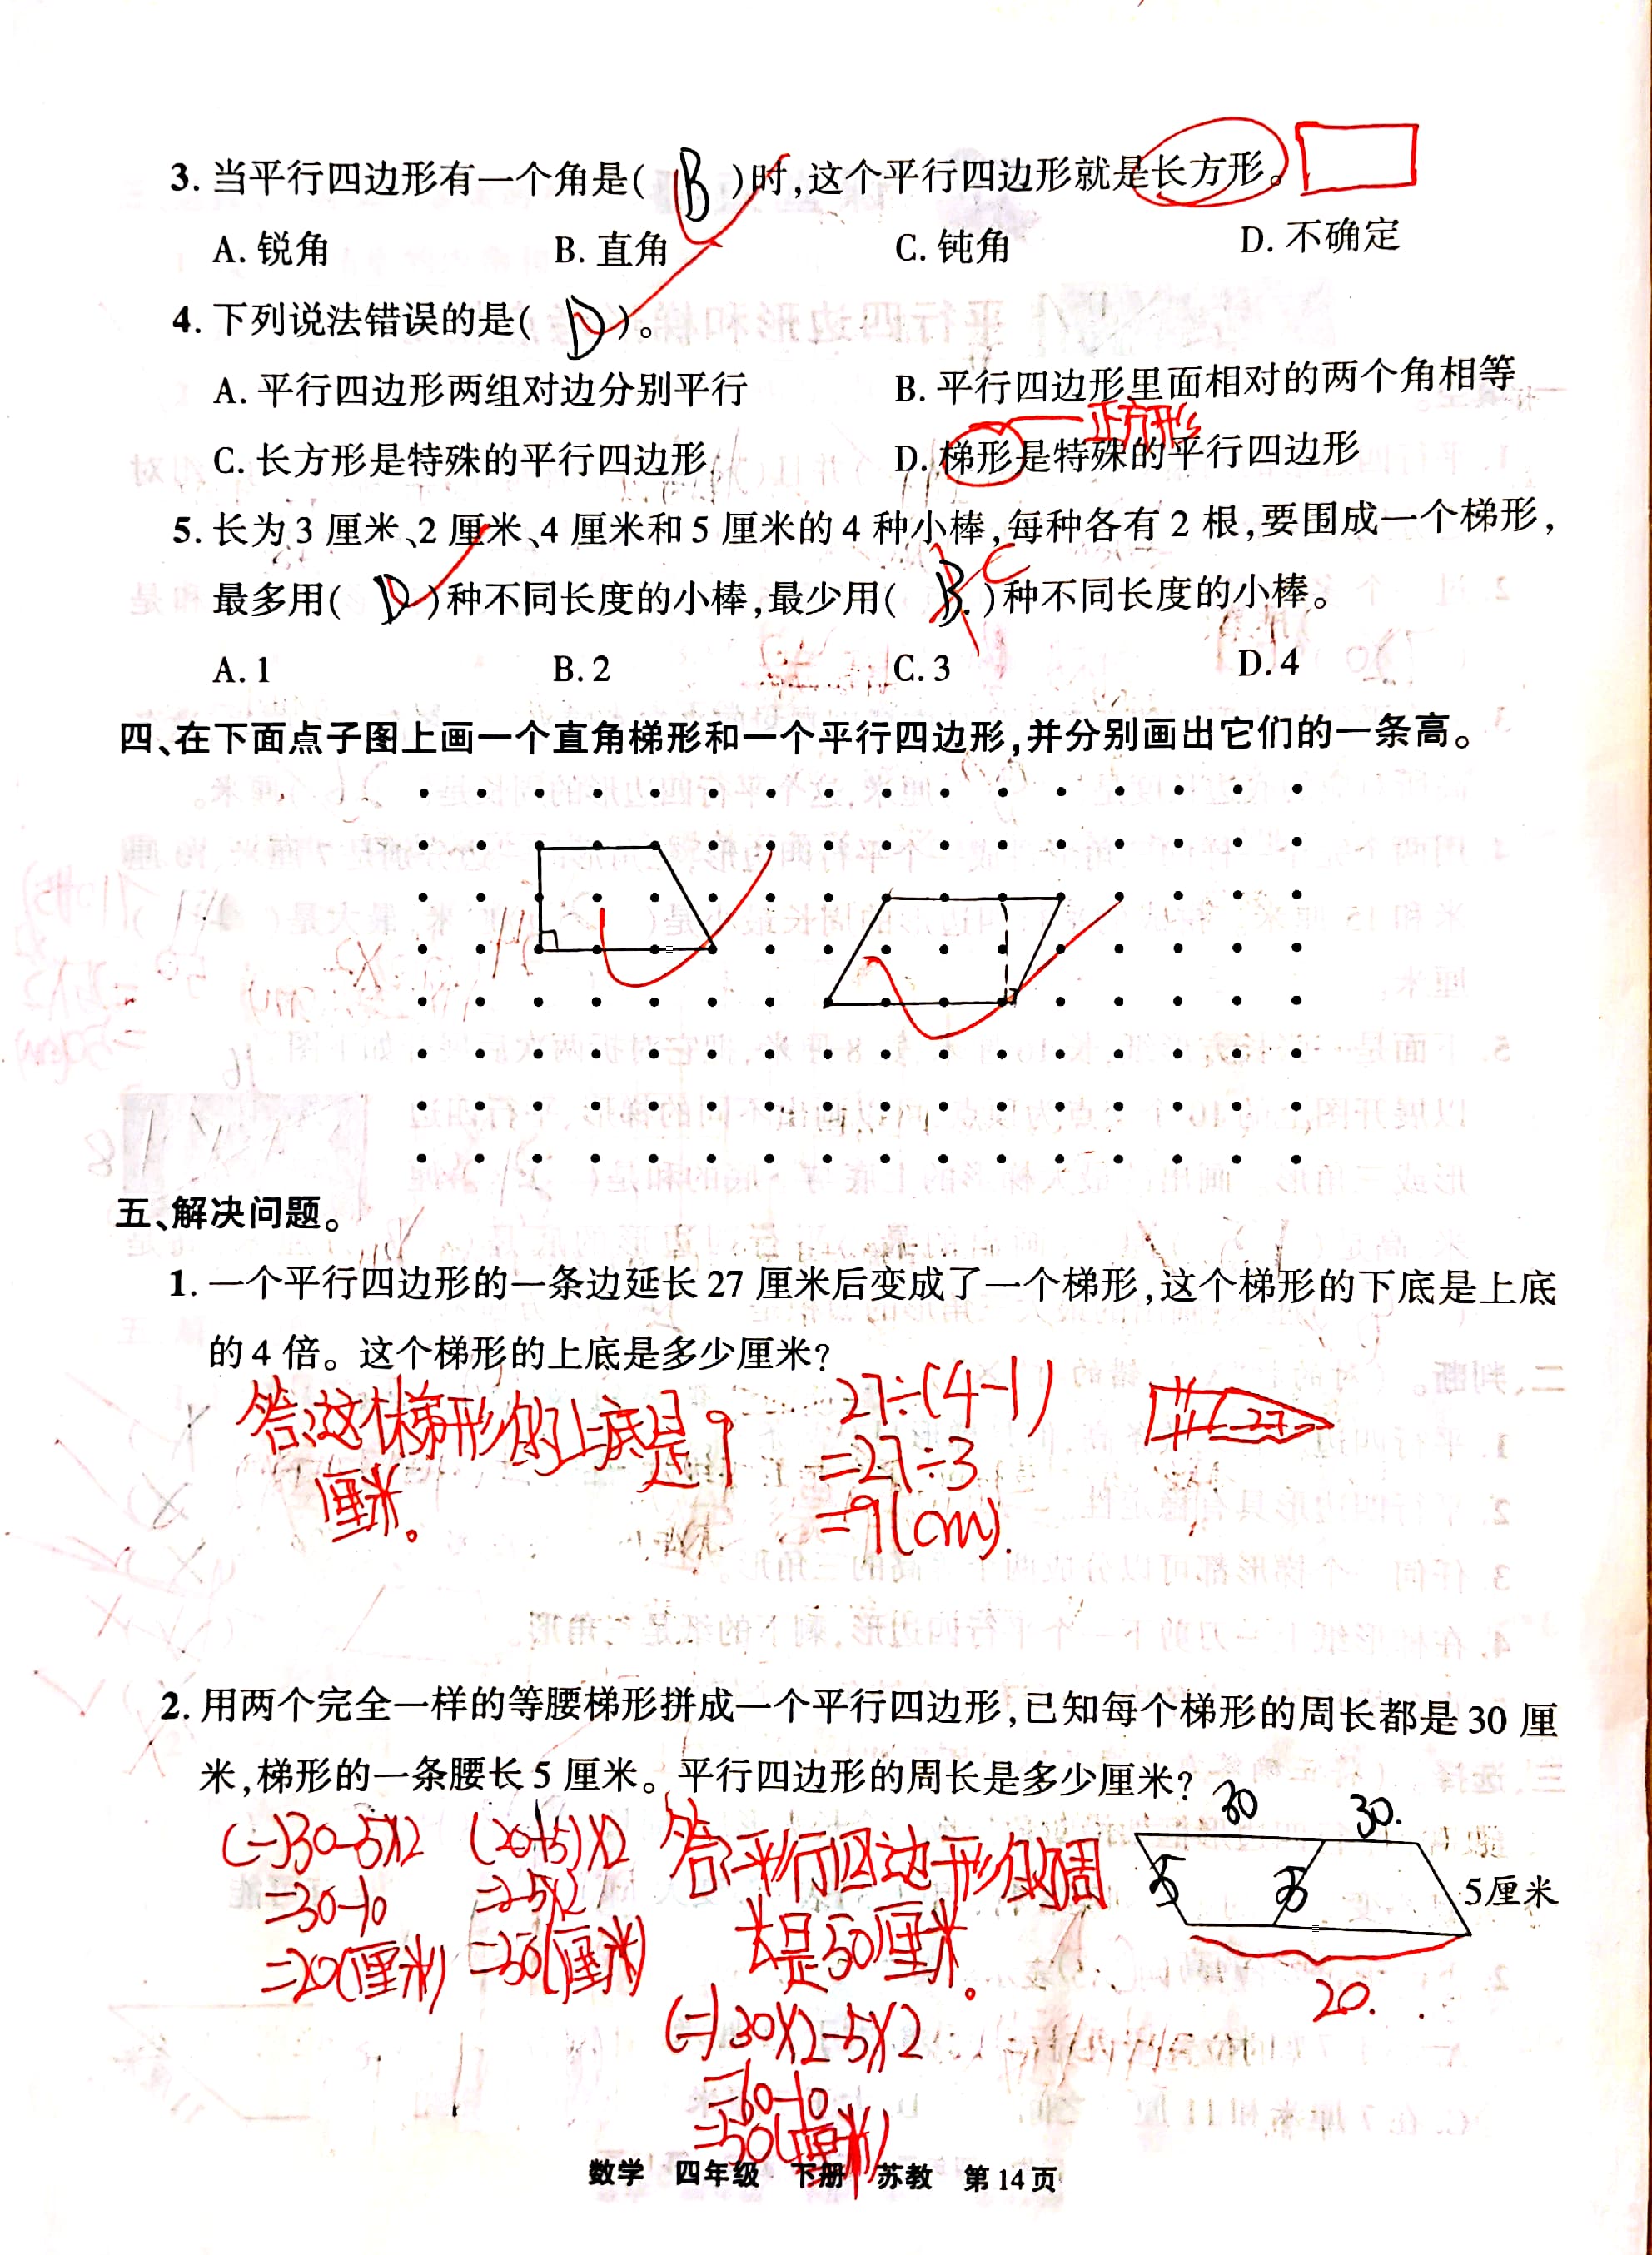 3. 当平行四边形有一个角是( B )时,这个平行四边形就是长方形。
A. 锐角 B. 直角 C. 钝角 D. 不确定
4. 下列说法错误的是( D )。
A. 平行四边形两组对边分别平行 B. 平行四边形里面相对的两个角相等
正方形
C. 长方形是特殊的平行四边形 D. 梯形是特殊的平行四边形
5. 长为 3 厘米、2 厘米、4 厘米和 5 厘米的 4 种小棒,每种各有 2 根,要围成一个梯形,
最多用( D )种不同长度的小棒,最少用( B C )种不同长度的小棒。
A. 1 B. 2 C. 3 D. 4
四、在下面点子图上画一个直角梯形和一个平行四边形,并分别画出它们的一条高。
五、解决问题。
1. 一个平行四边形的一条边延长 27 厘米后变成了一个梯形,这个梯形的下底是上底
的 4 倍。这个梯形的上底是多少厘米?
答:这个梯形的上底是9
厘米。
27÷(4-1)
=27÷3
=9(cm).
27
2. 用两个完全一样的等腰梯形拼成一个平行四边形,已知每个梯形的周长都是 30 厘
米,梯形的一条腰长 5 厘米。平行四边形的周长是多少厘米?
(一)30-5×2
=30-10
=20(厘米)
(20+5)×2
=25×2
=50(厘米)
答:平行四边形的周
长是50厘米。
(二)30×2-5×2
=60-10
=50(厘米)
30 30.
5 5 5厘米
20.
数学 四年级 下册 苏教 第 14 页